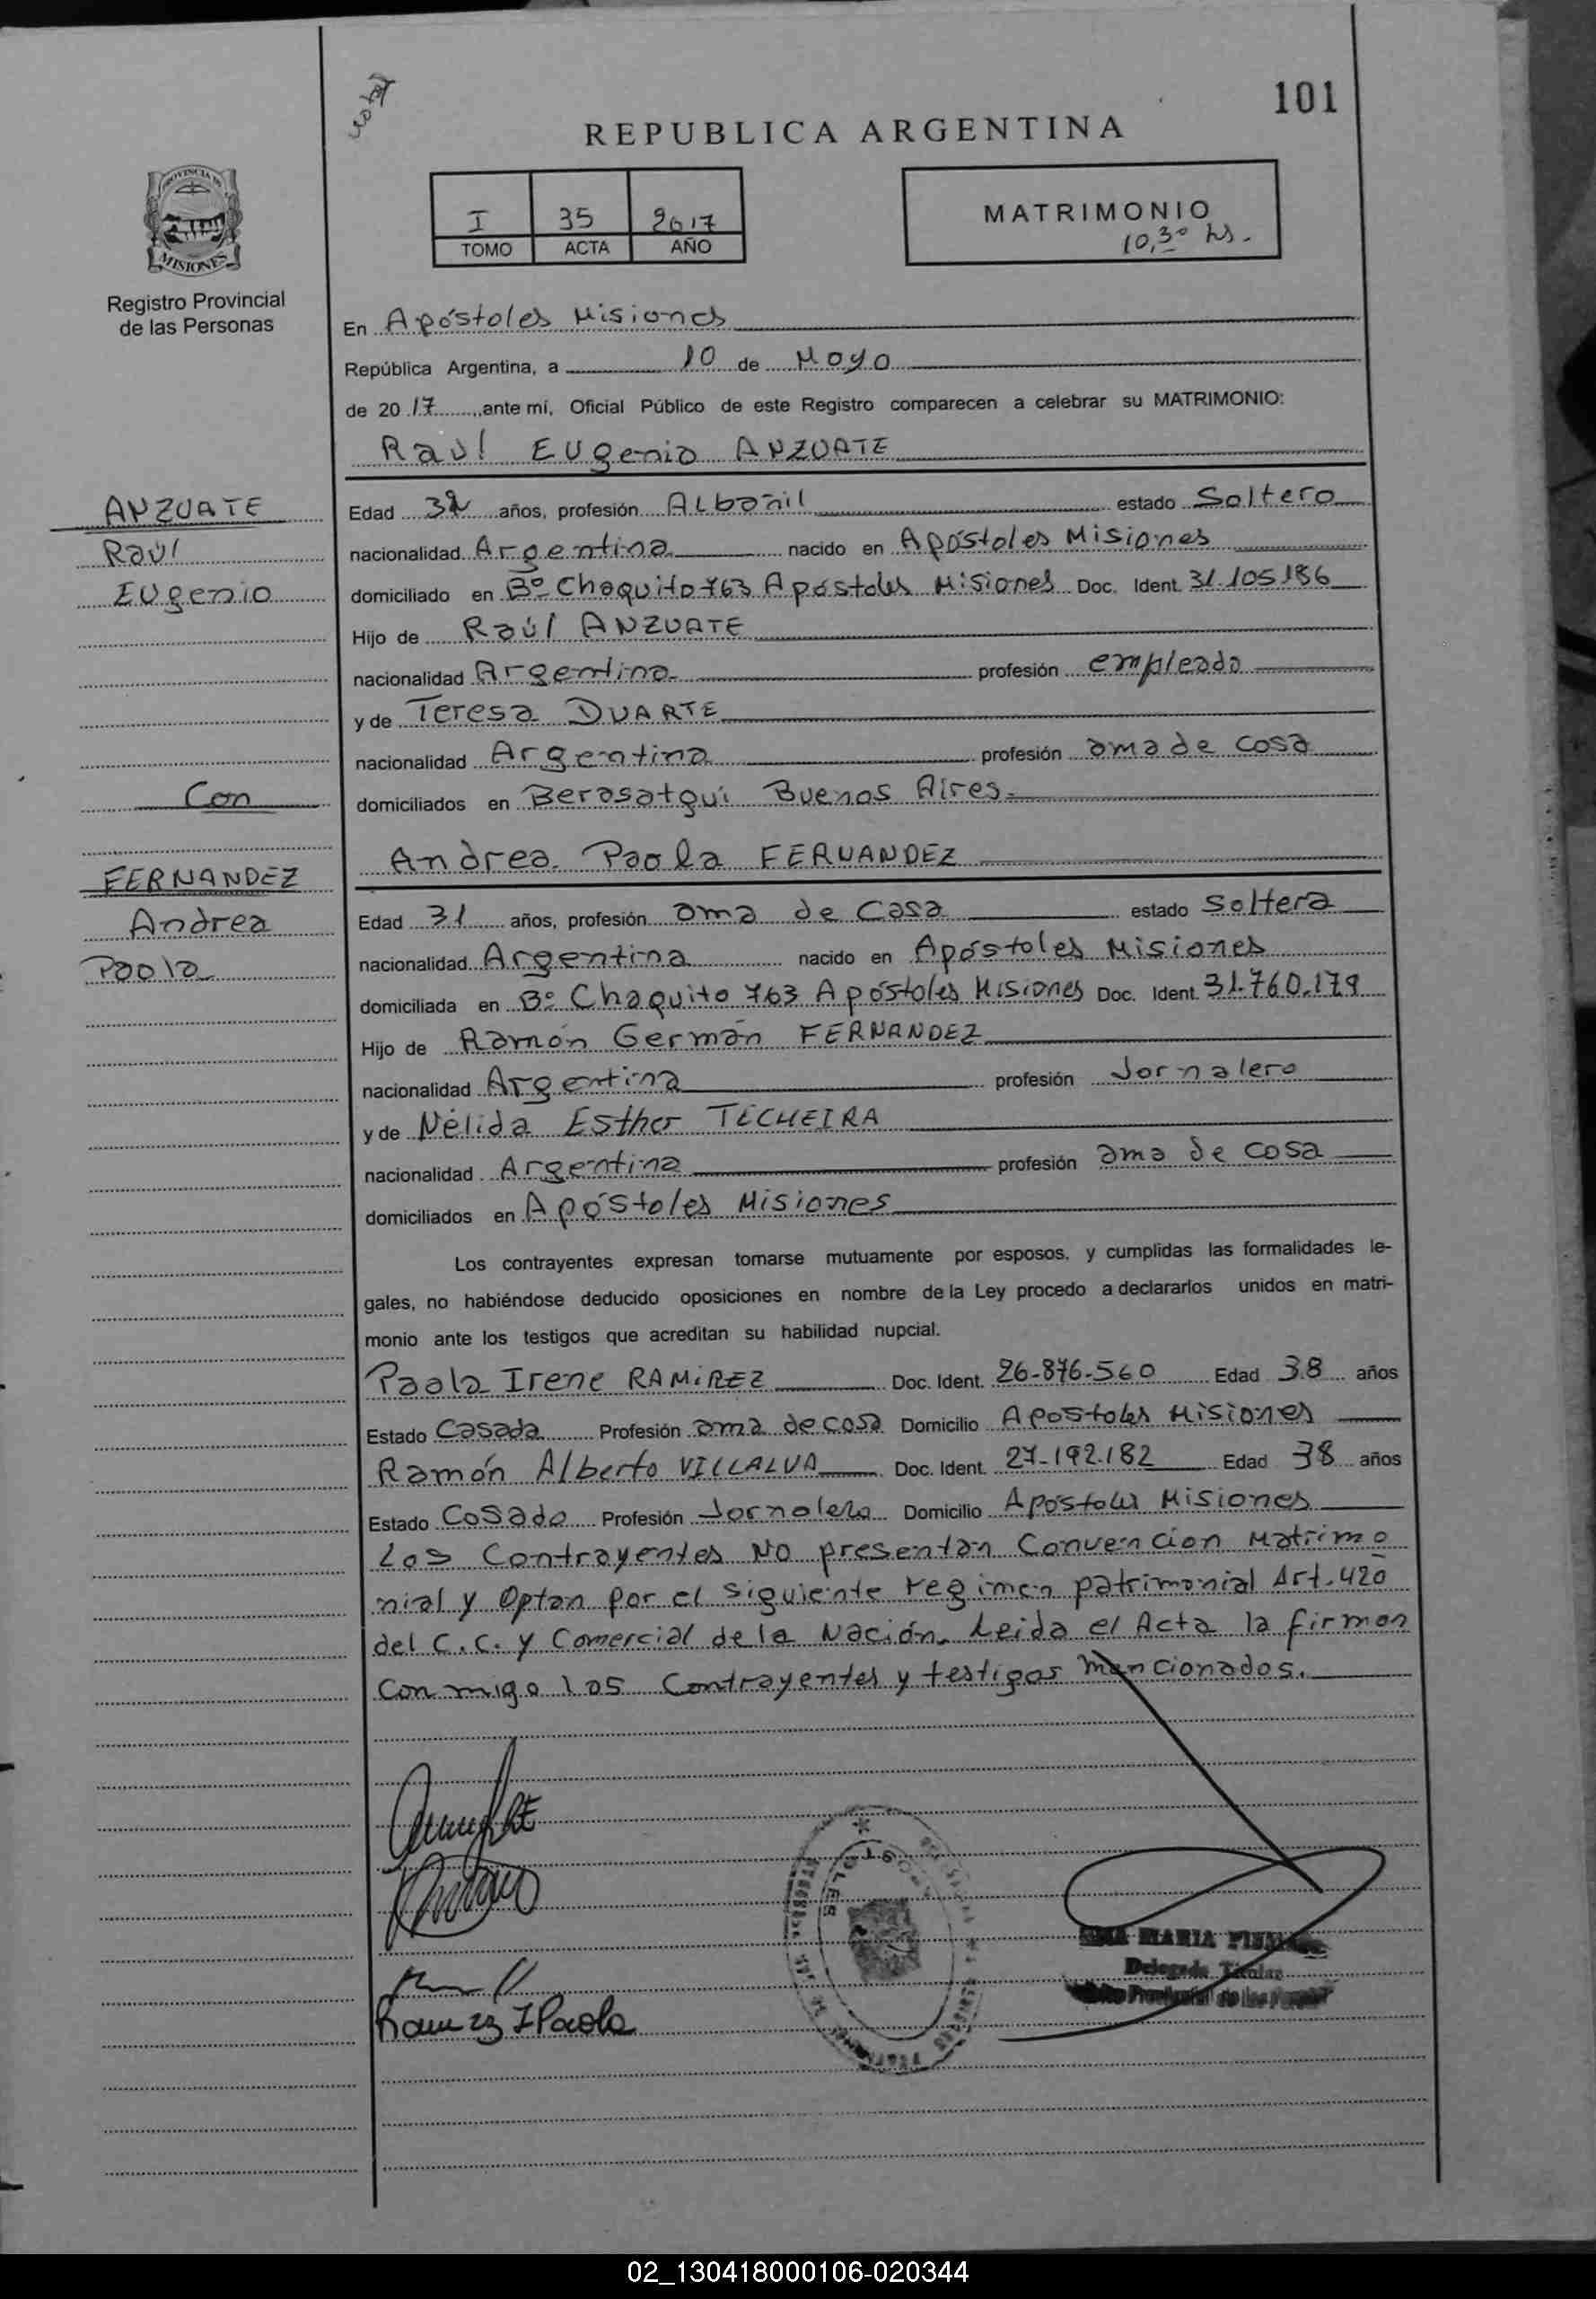 101
REPUBLICA ARGENTINA
I 35 2017
TOMO ACTA AÑO
MATRIMONIO
10,30 hs.
PROVINCIA DE
MISIONES
Registro Provincial
de las Personas
En Apóstoles Misiones
República Argentina, a 10 de Mayo
de 2017 ante mí, Oficial Público de este Registro comparecen a celebrar su MATRIMONIO:
Raúl EUgenio ANZUATE
ANZUATE
Raúl
EUgenio
Con
FERNANDEZ
Andrea
Paola
Edad 32 años, profesión ALbañil estado Soltero
nacionalidad Argentina nacido en Apóstoles Misiones
domiciliado en Bº Chaquito 763 Apóstoles Misiones Doc. Ident. 31.105.186
Hijo de Raúl ANZUATE
nacionalidad Argentina profesión empleado
y de Teresa DUARTE
nacionalidad Argentina profesión ama de casa
domiciliados en Berasatgui Buenos Aires.
Andrea Paola FERNANDEZ
Edad 31 años, profesión ama de Casa estado Soltera
nacionalidad Argentina nacido en Apóstoles Misiones
domiciliada en Bº Chaquito 763 Apóstoles Misiones Doc. Ident. 31.760.179
Hijo de Ramón Germán FERNANDEZ
nacionalidad Argentina profesión Jornalero
y de Nélida Esther TECHEIRA
nacionalidad Argentina profesión ama de casa
domiciliados en Apóstoles Misiones
Los contrayentes expresan tomarse mutuamente por esposos, y cumplidas las formalidades le-
gales, no habiéndose deducido oposiciones en nombre de la Ley procedo a declararlos unidos en matri-
monio ante los testigos que acreditan su habilidad nupcial.
Paola Irene RAMIREZ Doc. Ident. 26-876-560 Edad 38 años
Estado Casada Profesión ama de casa Domicilio Apostoles Misiones
Ramón Alberto VILLALVA Doc. Ident. 27-192.182 Edad 38 años
Estado Casado Profesión Jornalero Domicilio Apóstoles Misiones
Los Contrayentes NO presentan Convencion Matrimo
nial y Optan por el siguiente regimen patrimonial Art. 420
del C.C. y Comercial de la Nación. Leida el Acta la firman
Conmigo los Contrayentes y testigos mencionados.
Ramirez I Paola
MARIA
Delegada Titular
Provincial de las
02_130418000106-020344